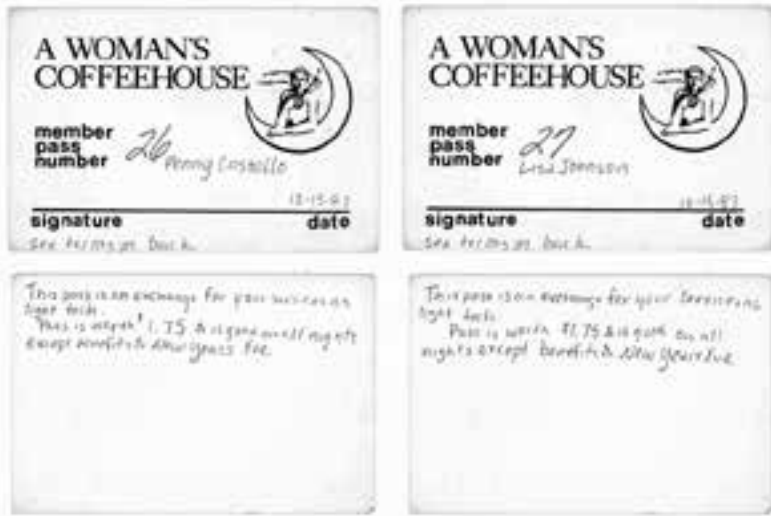 A WOMAN'S
COFFEEHOUSE
member
pass
number 26 Penny Costello
12-15-83
signature date
see terms on back
A WOMAN'S
COFFEEHOUSE
member
pass
number 27 Lisa Johnson
12-15-83
signature date
see terms on back
This pass is an exchange for your services as
light tech.
Pass is worth $1.75 & is good on all nights
except benefits & New Years Eve
This pass is an exchange for your services as
light tech.
Pass is worth $1.75 & is good on all
nights except benefits & New Years Eve